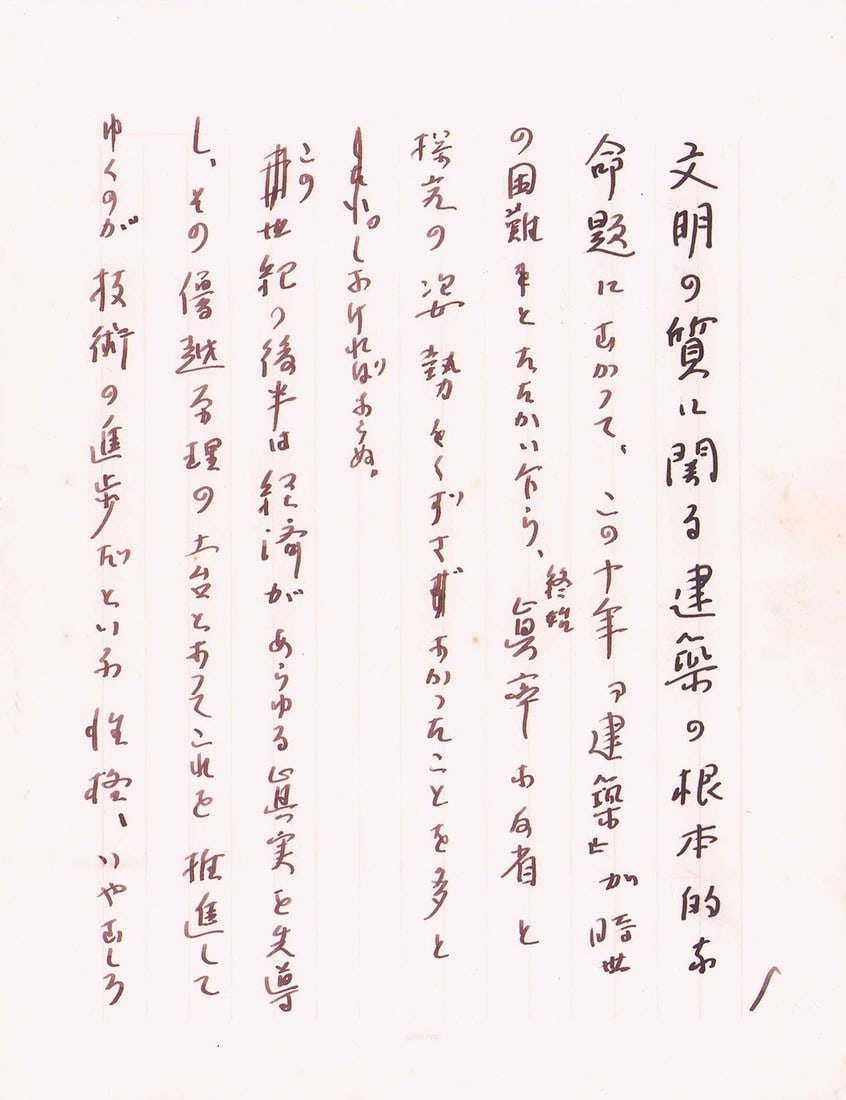 文明の質に関る建築の根本的な
命題にむかつて、この十年の「建築」が時世
の困難とたたかい乍ら、終始真率な反省と
探究の姿勢をくずさなかつたことを多と
しなければならぬ。
この世紀の後半は経済があらゆる真実を先導
し、その優越する理の土台となつてこれを推進して
ゆくのが技術の進歩だといふ性格、いやむしろ